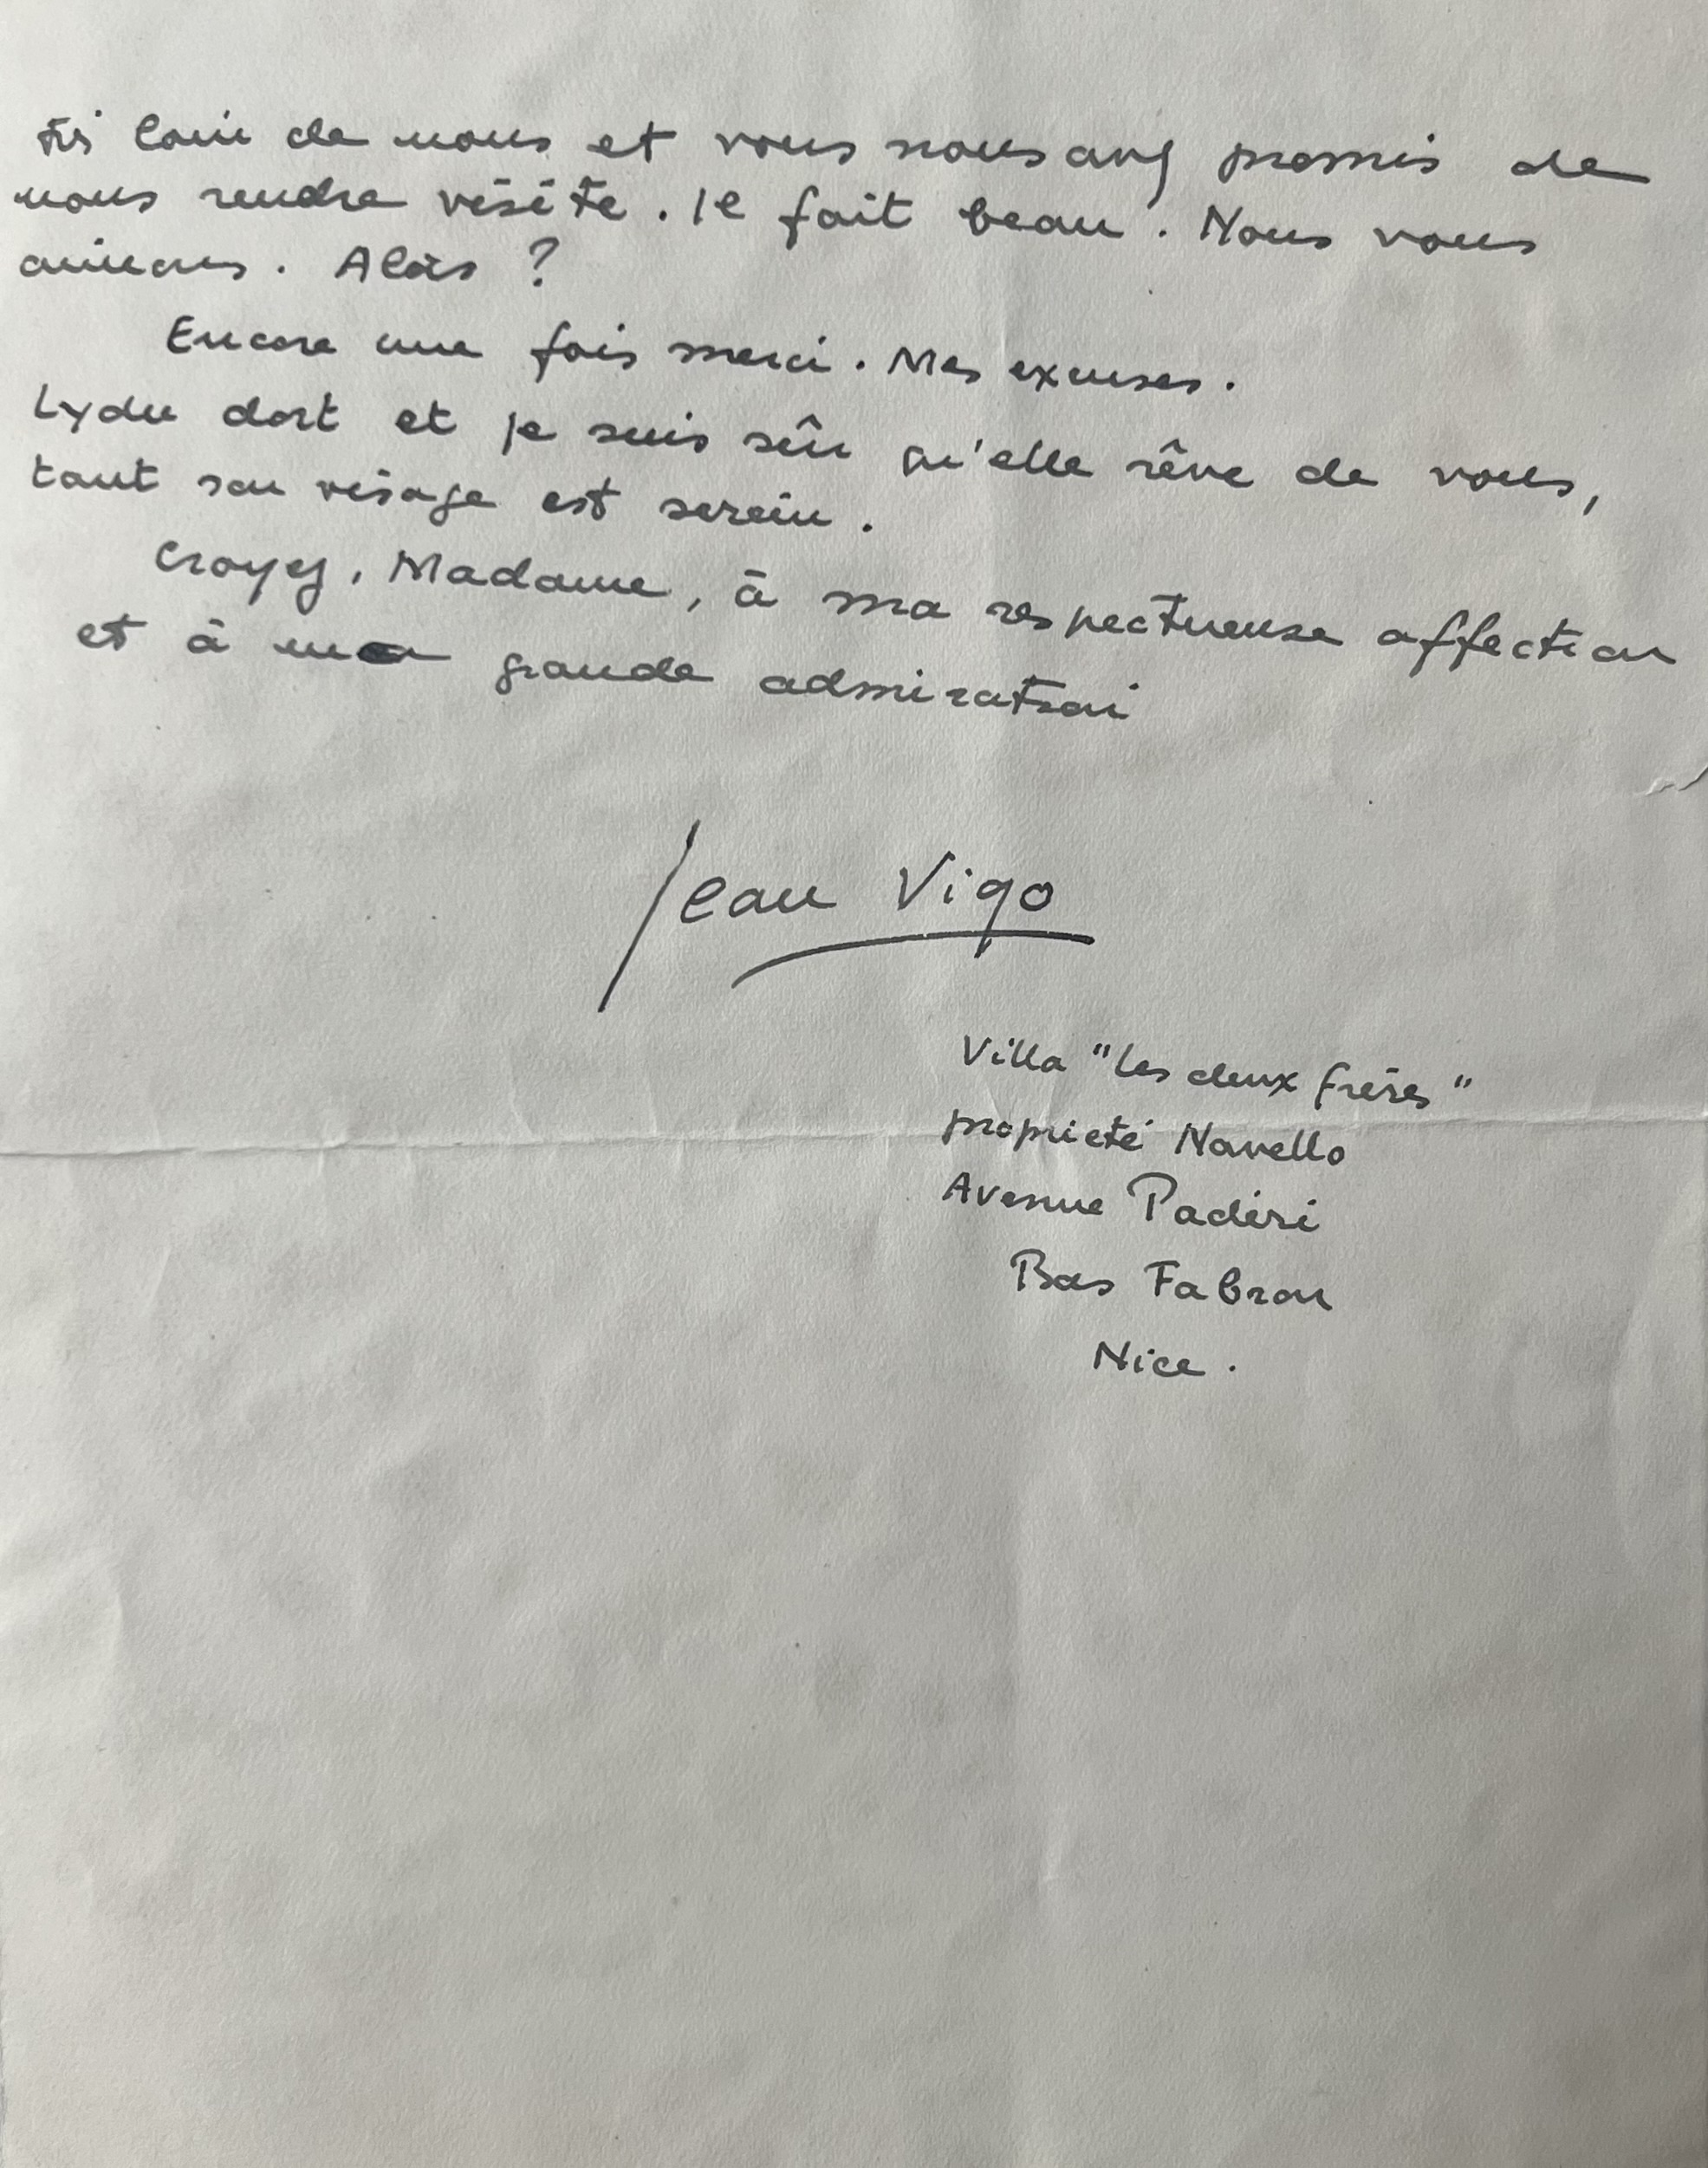 très loin de nous et vous nous avez promis de
nous rendre visite. Il fait beau. Nous vous
aimons. Alors ?
Encore une fois merci. Mes excuses.
Lydu dort et je suis sûr qu'elle rêve de vous,
tant son visage est serein.
Croyez, Madame, à ma respectueuse affection
et à ma grande admiration
Jean Vigo
Villa "Les deux frères"
propriété Navello
Avenue Padéri
Bas Fabron
Nice.